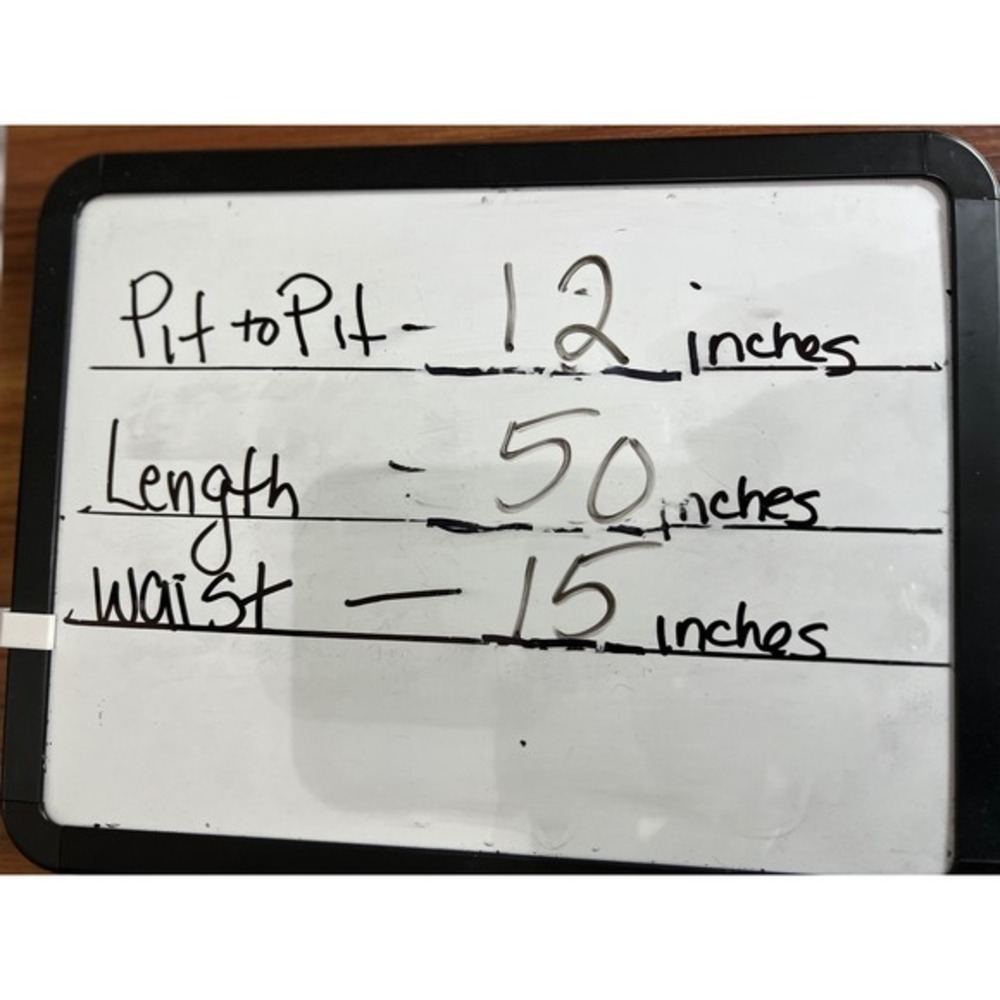 Pit to Pit - 12 inches
Length - 50 inches
Waist - 15 inches